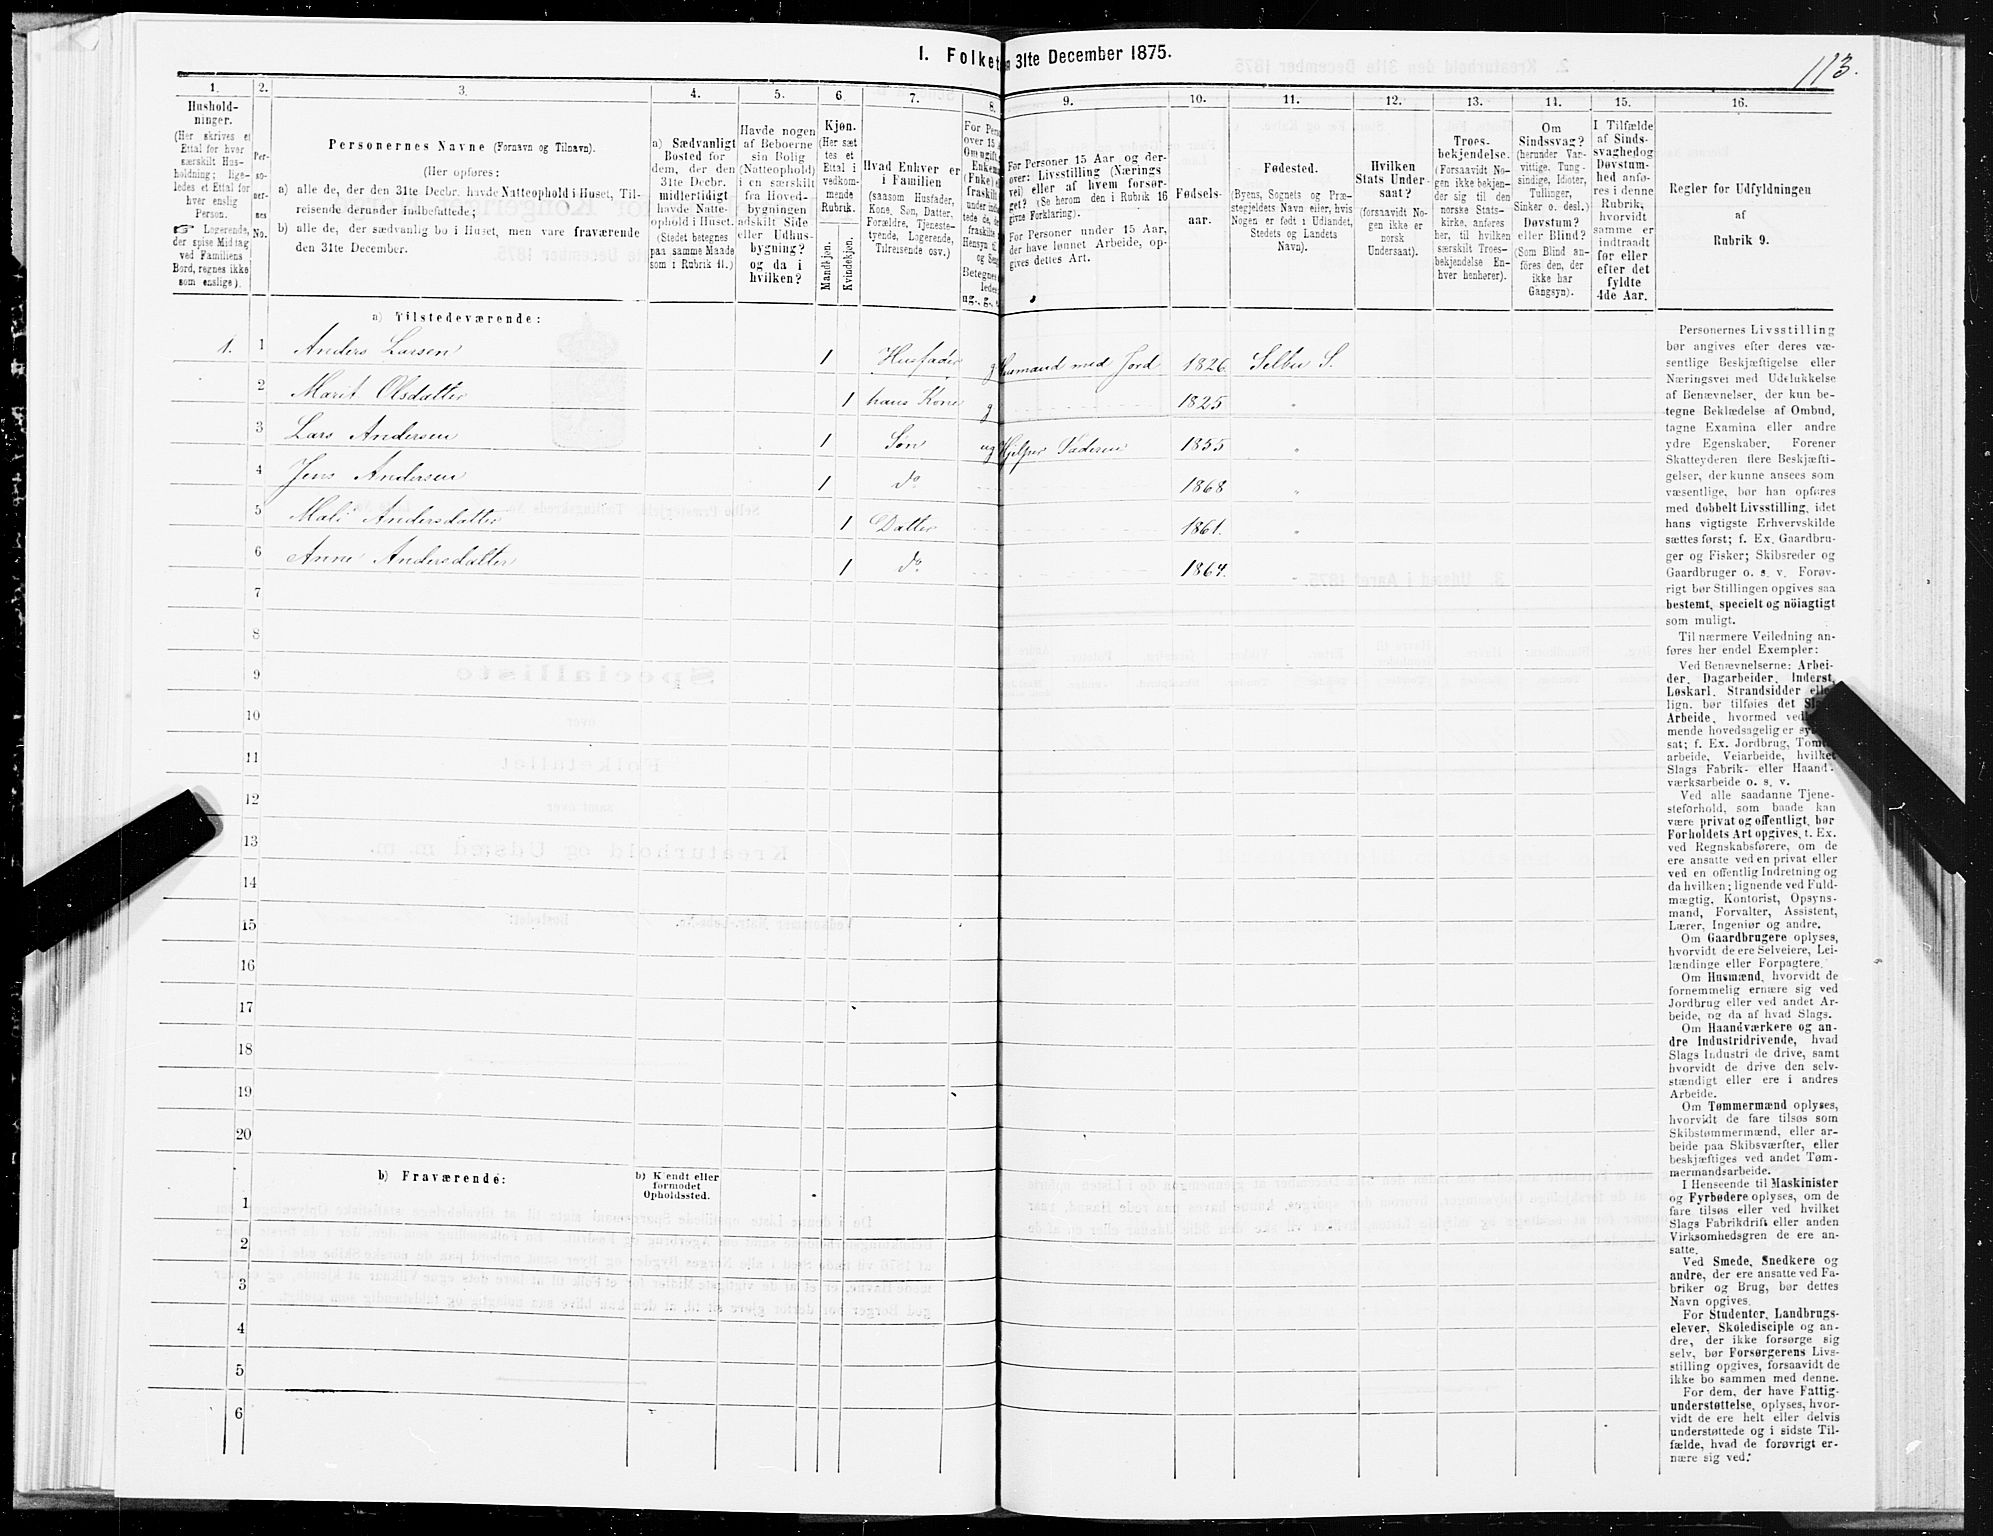 I. Folket
n 31te December 1875.
113.
1.
2.
3.
4.
5.
6
7.
8.
9.
10.
11.
12.
13.
14.
15.
16.
Hushold-
ninger.
(Her skrives et
Ettal for hver
særskilt Hus-
holdning; lige-
ledes et Ettal for
hver enslig
Person.
☞ Logerende,
der spise Middag
ved Familiens
Bord, regnes ikke
som enslige).
Per-
so-
ner-
nes
No.
Personernes Navne (Fornavn og Tilnavn).
(Her opføres:
a) alle de, der den 31te Decbr. havde Natteophold i Huset, Til-
reisende derunder indbefattede;
b) alle de, der sædvanlig bo i Huset, men vare fraværende
den 31te December.
a) Sædvanligt
Bosted for
dem, der den
31te Decbr.
midlertidigt
havde Natte-
ophold i Huset.
(Stedet betegnes
paa samme Maade
som i Rubrik 11.)
Havde nogen
af Beboerne
sin Bolig
(Natteophold)
i en særskilt
fra Hoved-
bygningen
adskilt Side
eller Udhus-
bygning?
og da i
hvilken?
Kjøn.
(Her sæt
tes et
Ettal i
vedkom-
mende
Rubrik.
Mandkjøn.
Kvindekjøn.
Hvad Enhver er
i Familien
(saasom Husfader,
Kone, Søn, Datter,
Forældre, Tjeneste-
tyende, Logerende,
Tilreisende osv.)
For Pers
over 15 A
Om ugift,
Enkem
(Fnke) e
fraskilt
under indb
tede de, de
fraskilte
Hensyn til
og Seng
Betegnes
ledes
ug., g.,
For Personer 15 Aar og der-
over: Livsstilling (Nærings
vei) eller af hvem forsør-
get? (Se herom den i Rubrik 16
givne Forklaring).
For Personer under 15 Aar,
der have lønnet Arbeide, op-
gives dettes Art.
Fødsels-
aar.
Fødested.
(Byens, Sognets og Præ-
stegjeldets Navn eller, hvis
Nogen er født i Udlandet,
Stedets og Landets
Navn).
Hvilken
Stats Under-
saat?
(forsaavidt No-
gen ikke er
norsk
Undersaat).
Troes-
bekjendelse.
(Forsaavidt No-
gen ikke bekjen-
der sig til den
norske Stats-
kirke, anføres
her, til hvilken
særskilt Troes-
bekjendelse En-
hver henhører).
Om
Sindssvag?
(herunder Var-
vittige, Tung-
sindige, Idioter,
Tullinger,
Sinker o. desl.)
Døvstum?
eller Blind?
(Som Blind an-
føres den, der
ikke har
Gangsyn).
I Tilfælde
af Sinds-
svaghed og
Døvstum-
hed anfø-
res i denne
Rubrik,
hvorvidt
samme er
indtraadt
før eller
efter det
fyldte
4de Aar.
Regler for Udfyldningen
af
Rubrik 9.
a) Tilstedeværende:
1. 1 Anders Larsen 1 Husfader g Husmand med Jord 1826. Selbu S.
2 Marit Olsdatter 1 hans Kone g 1825 "
3 Lars Andersen 1 Søn ug Hjelper Faderen 1855 "
4 Jens Andersen 1 do 1868 "
5 Mali Andersdatter 1 Datter 1861. "
6 Anne Andersdatter 1 do. 1864.
7
8
9
10
11
12
13
14
15
16
17
18
19
20
b) Fraværende:
b) Kjendt eller
formodet
Opholdssted.
1
2
3
4
5
6
Personernes Livsstilling
bør angives efter deres væ-
sentlige Beskjæftigelse eller
Næringsvei med Udelukkelse
af Benævnelser, der kun be-
tegne Beklædelse af Ombud,
tagne Examina eller andre
ydre Egenskaber. Forener
Skatteyderen flere Beskjæfti-
gelser, der kunne ansees som
væsentlige, bør han opføres
med dobbelt Livsstilling, idet
hans vigtigste Erhvervskilde
sættes først; f. Ex. Gaardbru-
ger og Fisker; Skibsreder og
Gaardbruger o. s. v. Forøv-
rigt bør Stillingen opgives saa
bestemt, specielt og nöiagtigt
som muligt.
Til nærmere Veiledning an-
føres her endel Exempler:
Ved Benævnelserne: Arbei-
der, Dagarbeider, Inderst,
Løskarl, Strandsidder eller
lign. bør tilføies det Slags
Arbeide, hvormed ved
mende hovedsagelig er sy
sat; f. Ex. Jordbrug, Tom
arbeide, Veiarbeide, hvilket
Slags Fabrik- eller Haand-
værksarbeide o. s. v.
Ved alle saadanne Tjene-
steforhold, som baade kan
være privat og offentligt, bør
Forholdets Art opgives, t. Ex.
ved Regnskabsførere, om de
ere ansatte ved en privat eller
ved en offentlig Indretning og
da hvilken; lignende ved Fuld-
mægtig, Kontorist, Opsyns-
mand, Forvalter, Assistent,
Lærer, Ingeniør og andre.
Om Gaardbrugere oplyses,
hvorvidt de ere Selveiere, Lei-
lændinge eller Forpagtere.
Om Husmænd, hvorvidt de
fornemmelig ernære sig ved
Jordbrug eller ved andet Ar-
beide, og da af hvad Slags.
Om Haandværkere og an-
dre Industridrivende, hvad
Slags Industri de drive, samt
hvorvidt de drive den selv-
stændigt eller ere i andres
Arbeide.
Om Tømmermænd oplyses,
hvorvidt de fare tilsøs som
Skibstømmermænd, eller ar-
beide paa Skibsværfter, eller
beskjæftiges ved andet Tøm-
mermandsarbeide.
I Henseende til Maskinister
og Fyrbødere oplyses, om de
fare tilsøs eller ved hvilket
Slags Fabrikdrift eller anden
Virksomhedsgren de ere an-
satte.
Ved Smede, Snedkere og
andre, der ere ansatte ved Fa-
briker og Brug, bør dettes
Navn opgives.
For Studenter, Landbrugs-
elever, Skoledisciple og an-
dre, der ikke forsørge sig
selv, bør Forsørgerens Livs-
stilling opgives, forsaavidt de
ikke bo sammen med denne.
For dem, der have Fattig-
understøttelse, oplyses, hvor-
vidt de ere helt eller delvis
understøttede og i sidste Til-
fælde, hvad de forøvrigt er-
nære sig ved.